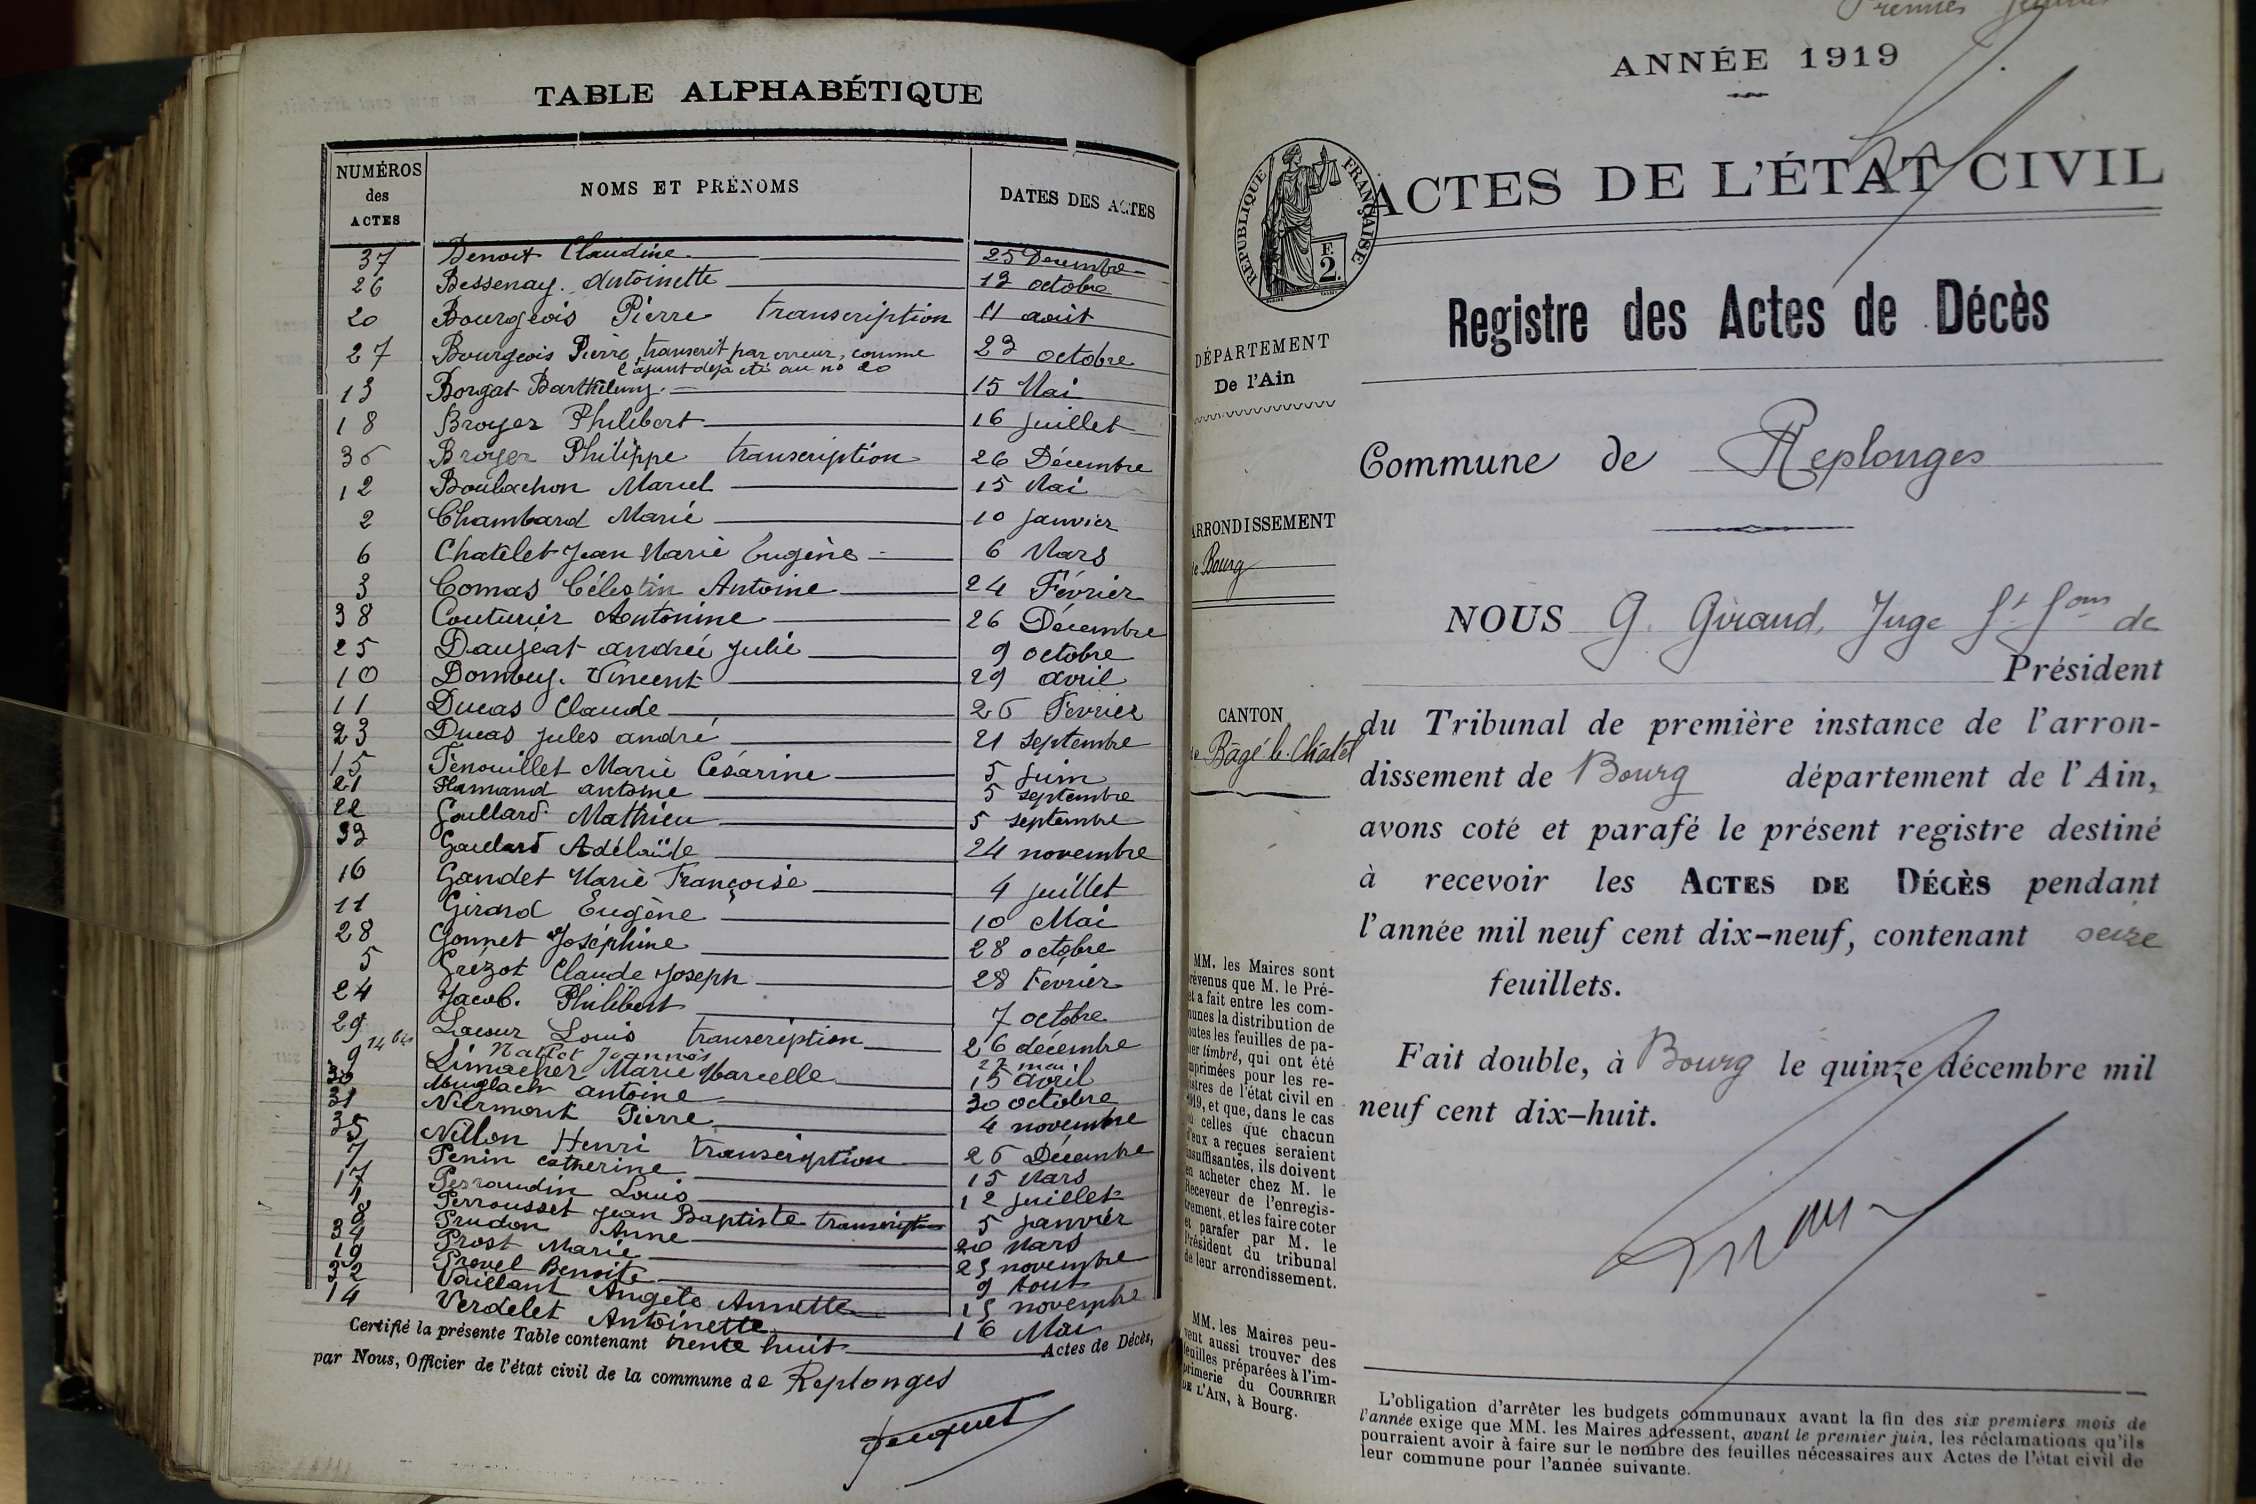 TABLE ALPHABÉTIQUE
NUMÉROS des ACTES NOMS ET PRÉNOMS DATES DES ACTES
37 Benoit Claudine 25 Décembre
26 Bessenay Antoinette 13 octobre
20 Bourgeois Pierre transcription 11 août
27 Bourgeois Pierre, transcrit par erreur, comme 23 octobre
l'ayant déjà été au no 20
13 Borgat Barthélemy 15 Mai
18 Broyer Philibert 16 juillet
36 Broyer Philippe transcription 26 Décembre
12 Boulachon Marcel 15 Mai
2 Chambard Marie 10 janvier
6 Chatelet Jean Marie Eugène 6 Mars
3 Comas Célestin Antoine 24 Février
38 Couturier Antonine 26 Décembre
25 Daujeat andrée Julie 9 octobre
10 Dombey Vincent 29 avril
11 Ducas Claude 26 Fevrier
23 Ducas jules andré 21 septembre
15 Fenouillet Marie Césarine 5 juin
21 Flamand antoine 5 septembre
22 Goullard Mathieu 5 septembre
33 Gaulard Adélaïde 24 novembre
16 Gandet Marie Françoise 4 juillet
11 Girard Eugène 10 Mai
28 Gonnet Joséphine 28 octobre
5 Grézot Claude Joseph 28 Février
24 Jacob. Philibert 7 octobre
29 Lacour Louis transcription 26 décembre
14 bis Nallet Joannès 27 mai
9 Limacher Marie Marcelle 15 avril
30 Muglach antoine 30 octobre
31 Niermont Pierre 4 novembre
35 Nillon Henri transcription 26 Décembre
7 Penin catherine 15 Mars
17 Perraudin Louis 12 juillet
1 Perrousset Jean Baptiste transcription 5 janvier
8 Prudon Anne 20 Mars
34 Prost Marie 25 novembre
19 Provel Benoite 9 Aout
32 Vaillant Angèle Annette 15 novembre
14 Verdelet Antoinette 16 Mai
Certifié la présente Table contenant trente huit Actes de Décès,
par Nous, Officier de l'état civil de la commune de Replonges
Jacquet
ANNÉE 1919
ACTES DE L'ÉTAT CIVIL
RÉPUBLIQUE FRANÇAISE
F. 2.
Registre des Actes de Décès
DÉPARTEMENT
De l'Ain
Commune de Replonges
ARRONDISSEMENT
de Bourg
NOUS G. Giraud, Juge de
Président
CANTON
de Bâgé-le-Châtel
du Tribunal de première instance de l'arron-
dissement de Bourg département de l'Ain,
avons coté et parafé le présent registre destiné
à recevoir les ACTES DE DÉCÈS pendant
l'année mil neuf cent dix-neuf, contenant seize
feuillets.
Fait double, à Bourg le quinze décembre mil
neuf cent dix-huit.
MM. les Maires sont
prévenus que M. le Pré-
fet a fait entre les com-
munes la distribution de
toutes les feuilles de pa-
pier timbré, qui ont été
imprimées pour les re-
gistres de l'état civil en
1919, et que, dans le cas
où celles que chacun
d'eux a reçues seraient
insuffisantes, ils doivent
en acheter chez M. le
Receveur de l'enregis-
trement, et les faire coter
et parafer par M. le
Président du tribunal
de leur arrondissement.
MM. les Maires peu-
vent aussi trouver des
feuilles préparées à l'im-
primerie du COURRIER
DE L'AIN, à Bourg.
L'obligation d'arrêter les budgets communaux avant la fin des six premiers mois de
l'année exige que MM. les Maires adressent, avant le premier juin, les réclamations qu'ils
pourraient avoir à faire sur le nombre des feuilles nécessaires aux Actes de l'état civil de
leur commune pour l'année suivante.